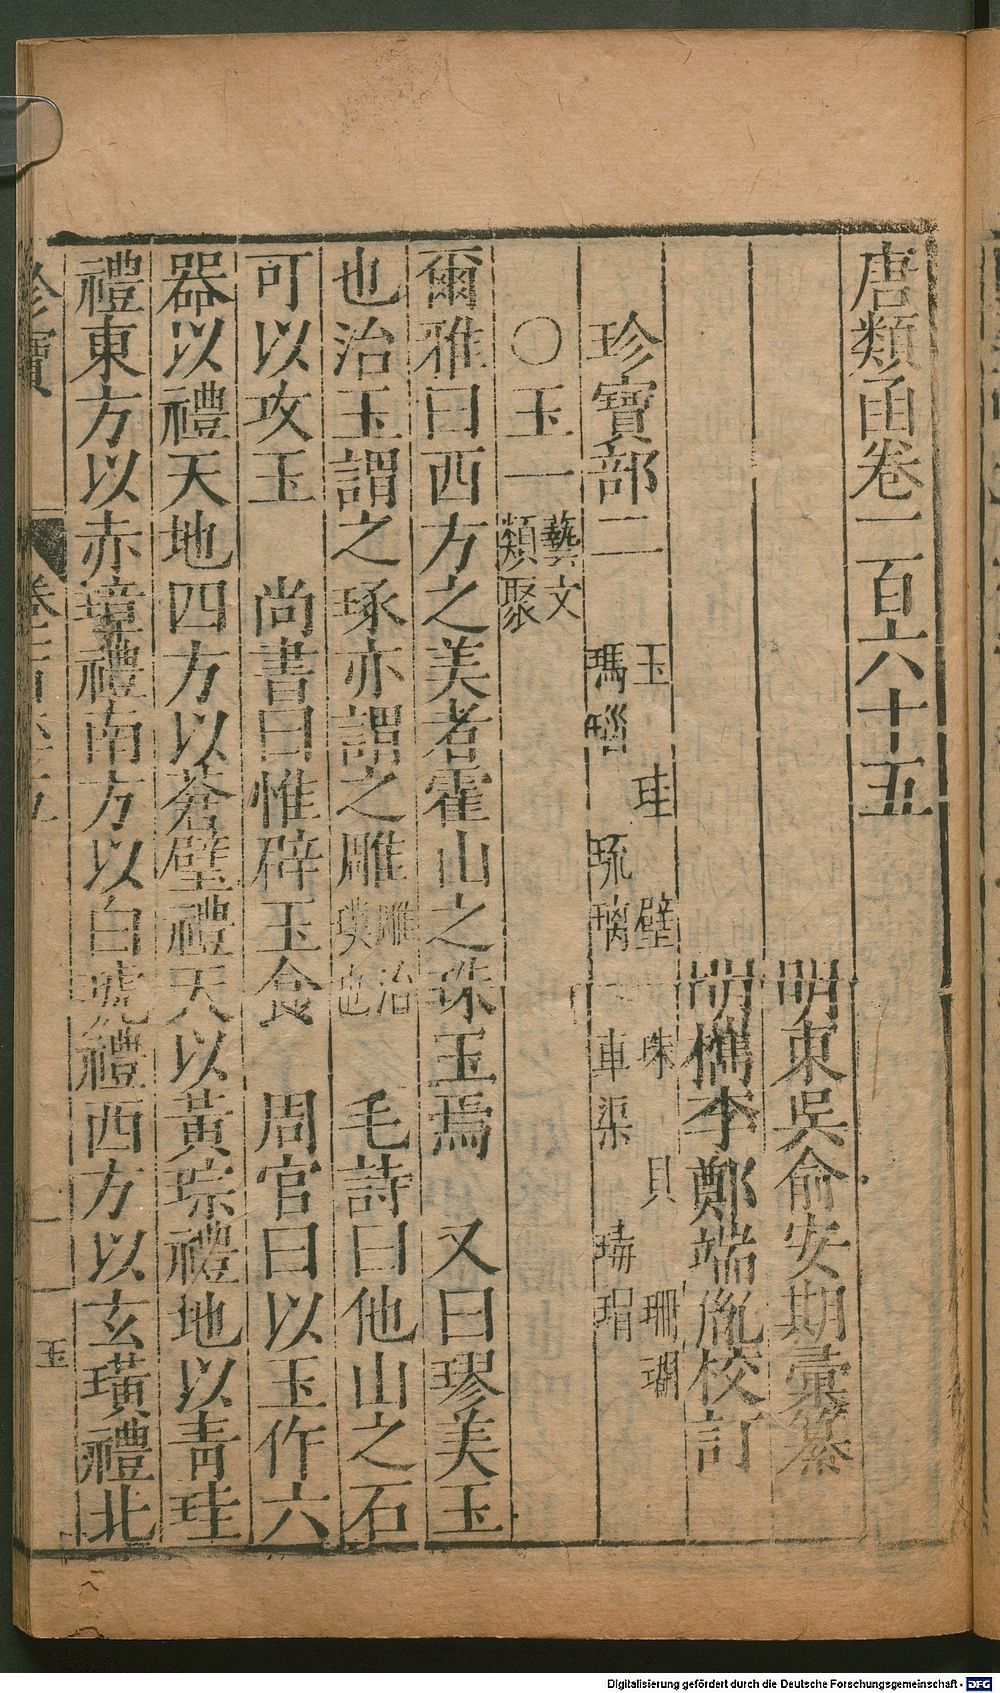 唐類函卷一百六十五
明東吳俞安期彙纂
明檇李鄭端胤校訂
珍寶部二
玉 珪 璧 珠 貝 珊瑚
瑪瑙 琉璃 車渠 瑇瑁
○玉一 藝文類聚
爾雅曰西方之美者霍山之珠玉焉 又曰璆美玉
也治玉謂之琢亦謂之雕 雕治璞也 毛詩曰他山之石
可以攻玉 尚書曰惟辟玉食 周官曰以玉作六
器以禮天地四方以蒼璧禮天以黃琮禮地以青珪
禮東方以赤璋禮南方以白琥禮西方以玄璜禮北
珍寶 卷一百六十五 一 玉
Digitalisierung gefördert durch die Deutsche Forschungsgemeinschaft - DFG